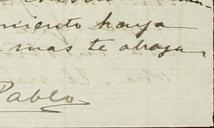 miento haya
mas te abraza
Pablo